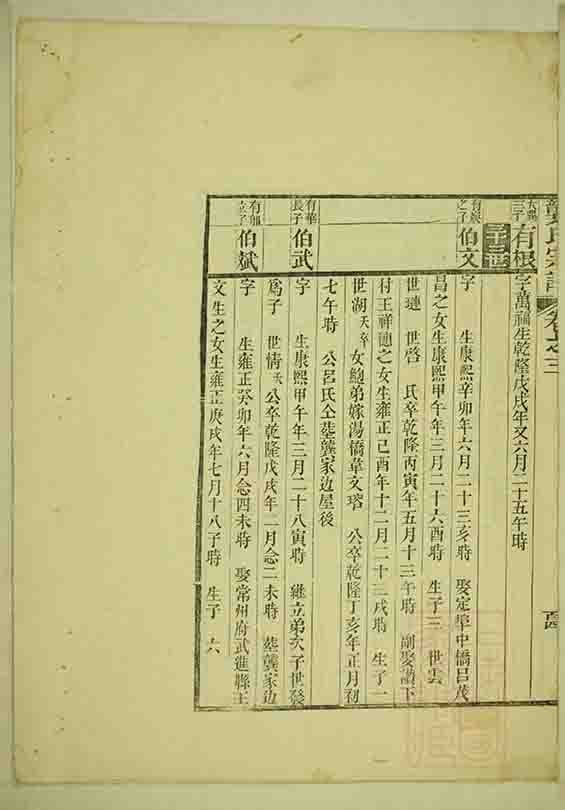 龔氏宗譜 卷之三 百四
三子 有根 字萬福生乾隆戊戌年又六月二十五午時
三十三世
之子 伯文 字 生康熙辛卯年六月二十三亥時 娶定埠中橋呂茂
昌之女生康熙甲午年三月二十六酉時 生子三 世雲
世璉 世啓 氏卒乾隆丙寅年五月十三午時 副娶讚下
村王祥德之女生雍正己酉年十二月二十三戌時 生子一
世湖夭卒 女鮑弟嫁湯橋韋文瑢 公卒乾隆丁亥年正月初
七午時 公呂氏仝塟龔家边屋後
有華長子 伯武 字 生康熙甲午年三月二十八寅時 繼立弟次子世發
爲子 世情夭 公卒乾隆戊戌年二月念二未時 塟龔家边
伯斌 字 生雍正癸卯年六月念四未時 娶常州府武進縣王
文生之女生雍正庚戌年七月十八子時 生子 六